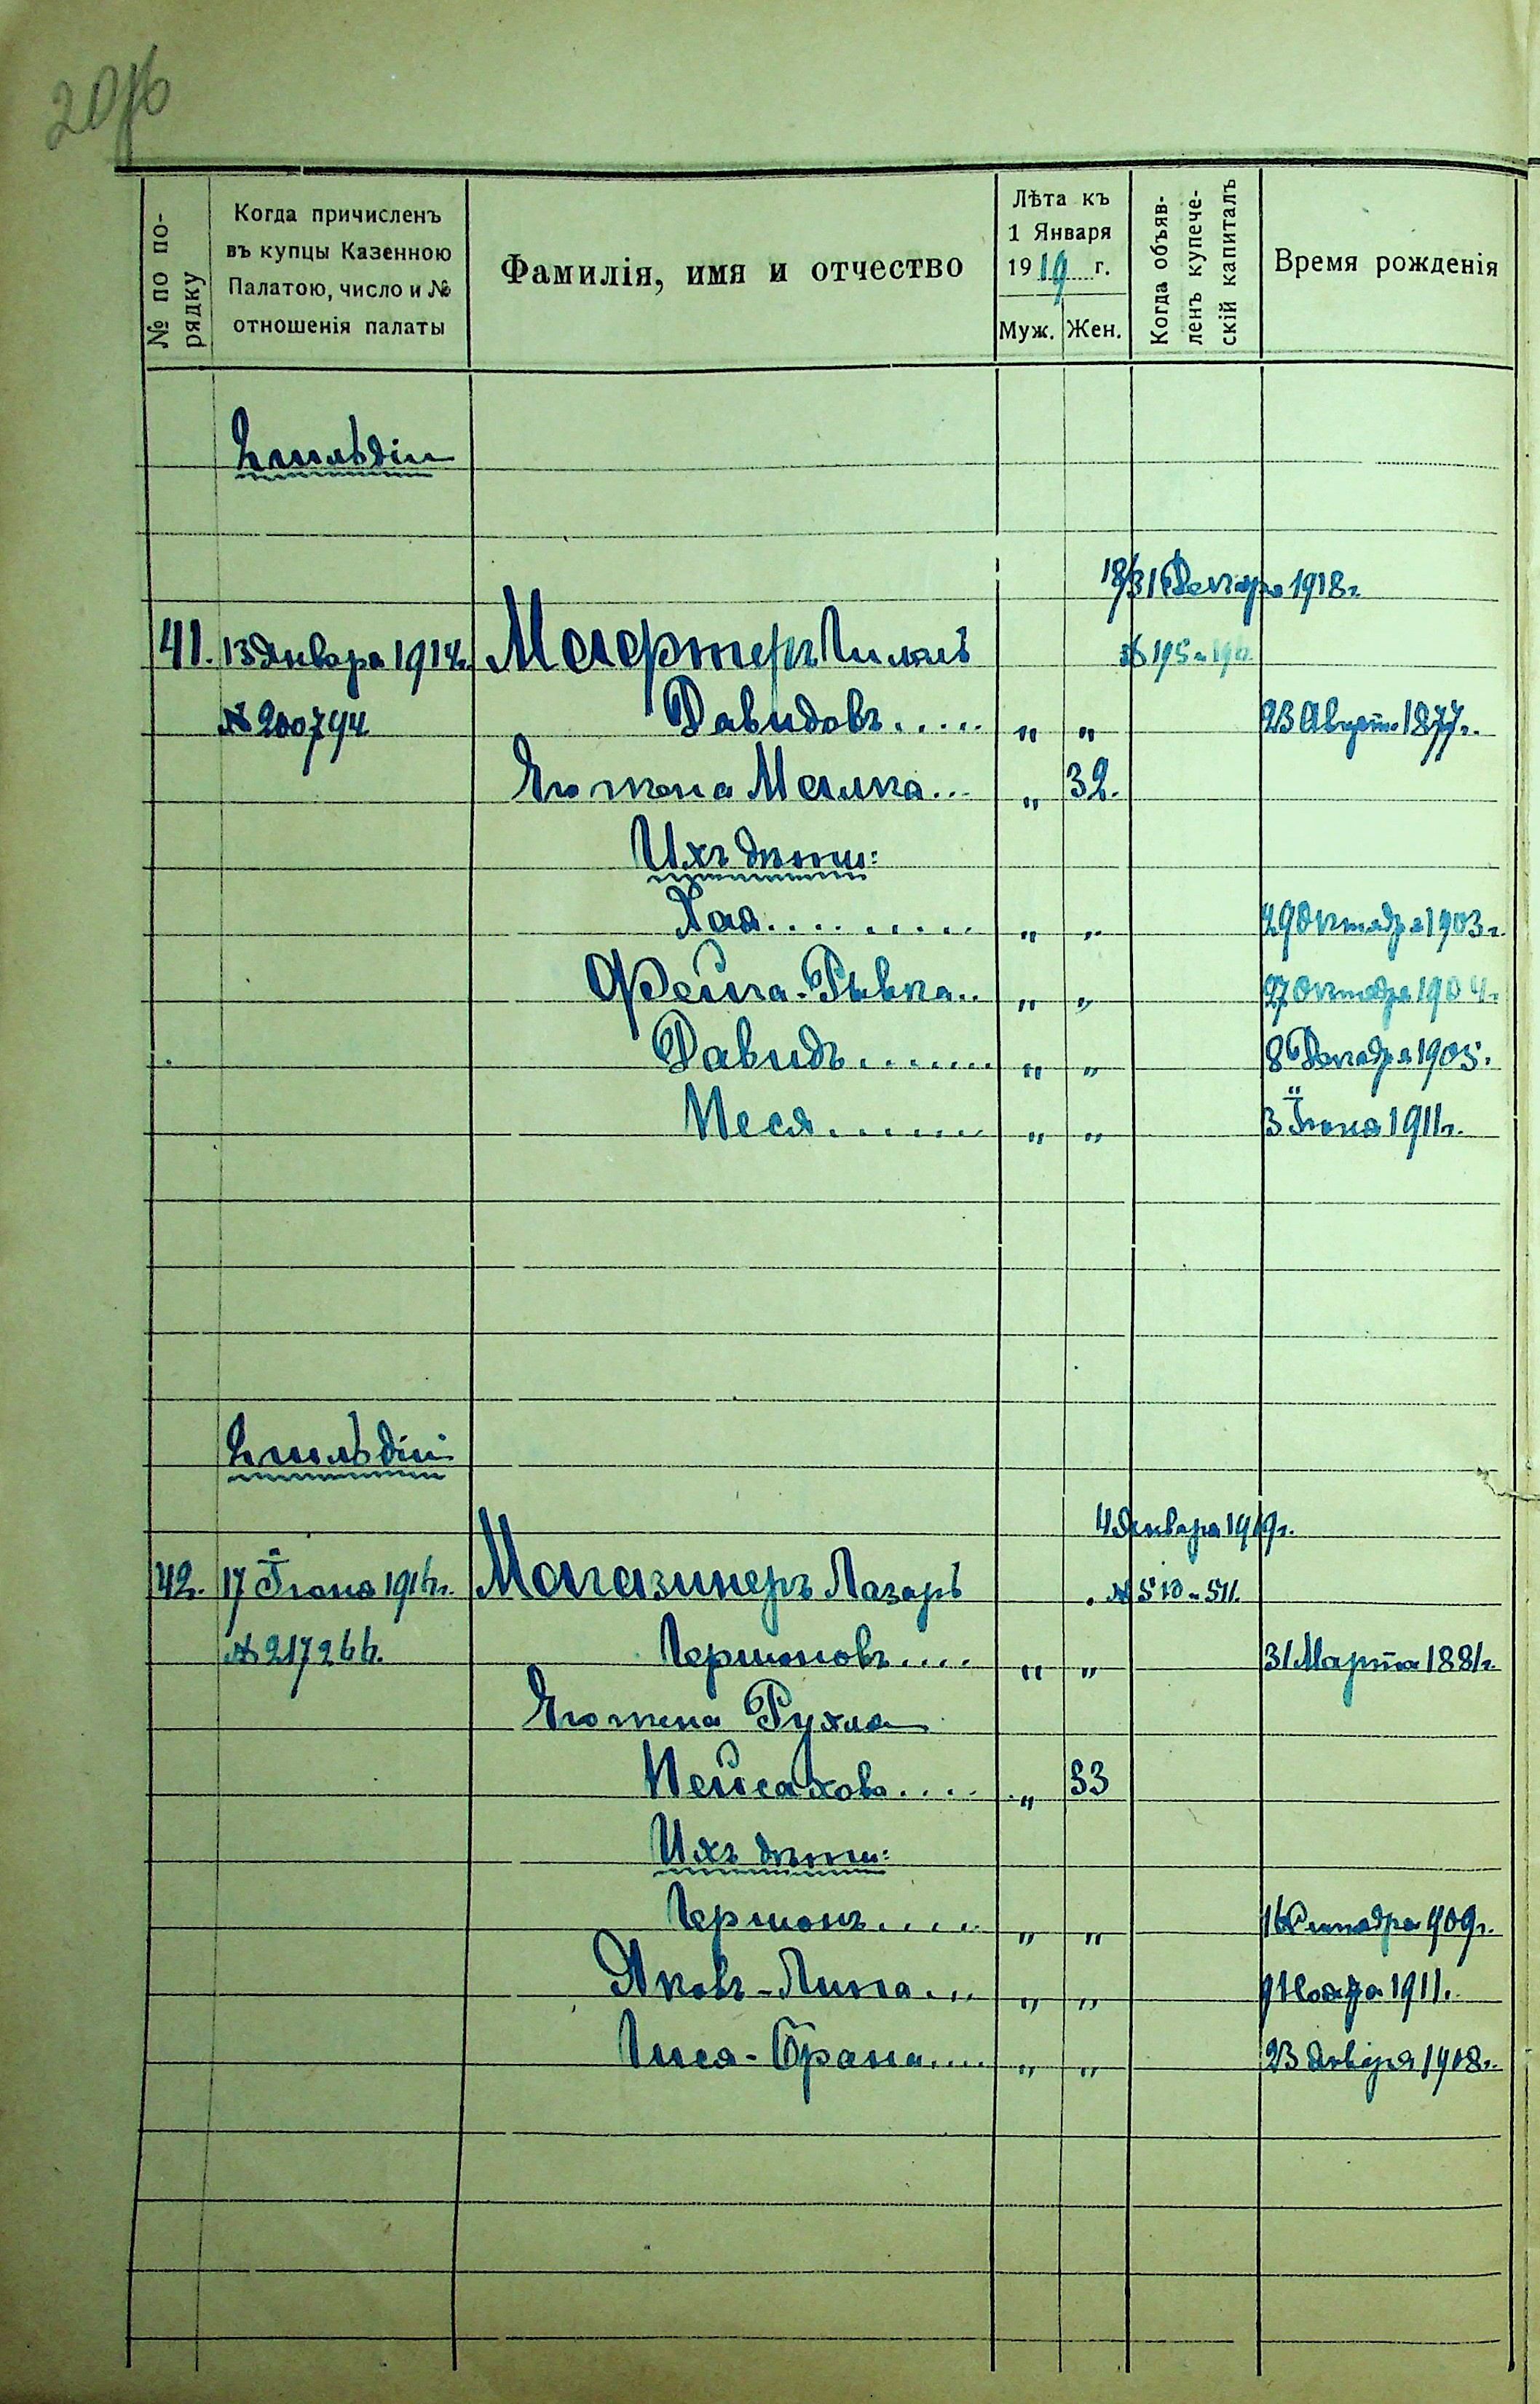 № по порядку
Когда причисленъ въ купцы Казенною Палатою, число и № отношенія палаты
Фамилія, имя и отчество
Лѣта къ 1 Января 1919 г.
Муж. Жен.
Когда объявленъ купеческій капиталъ
Время рожденія
II гильдіи
18/31 Декабря 1918 г.
41. 13 Января 1914 г. Мейертеръ № 195 и 196
№ 200794 Давидовъ..... " " 23 Август. 1877 г.
Его жена Малка... " 32.
Ихъ дѣти:
Хая.......... " " 29 Октября 1903 г.
Фейга-Рывка.. " " 27 Октября 1904 г.
Давидъ........ " " 8 Декабря 1905.
Песя........ " " 3 Іюня 1911 г.
II гильдіи
4 Января 1919 г.
42. 17 Іюня 1916 г. Магазинеръ Лазарь № 510 и 511.
№ 217266. Гершоновъ.... " " 31 Марта 1881 г.
Его жена Рухля
Пейсахова..... " 33
Ихъ дѣти:
Гершонъ..... " " 16 Октября 909 г.
Яковъ-Липа... " " 9 Ноября 1911.
Гися-Брана.... " " 23 Января 1908 г.